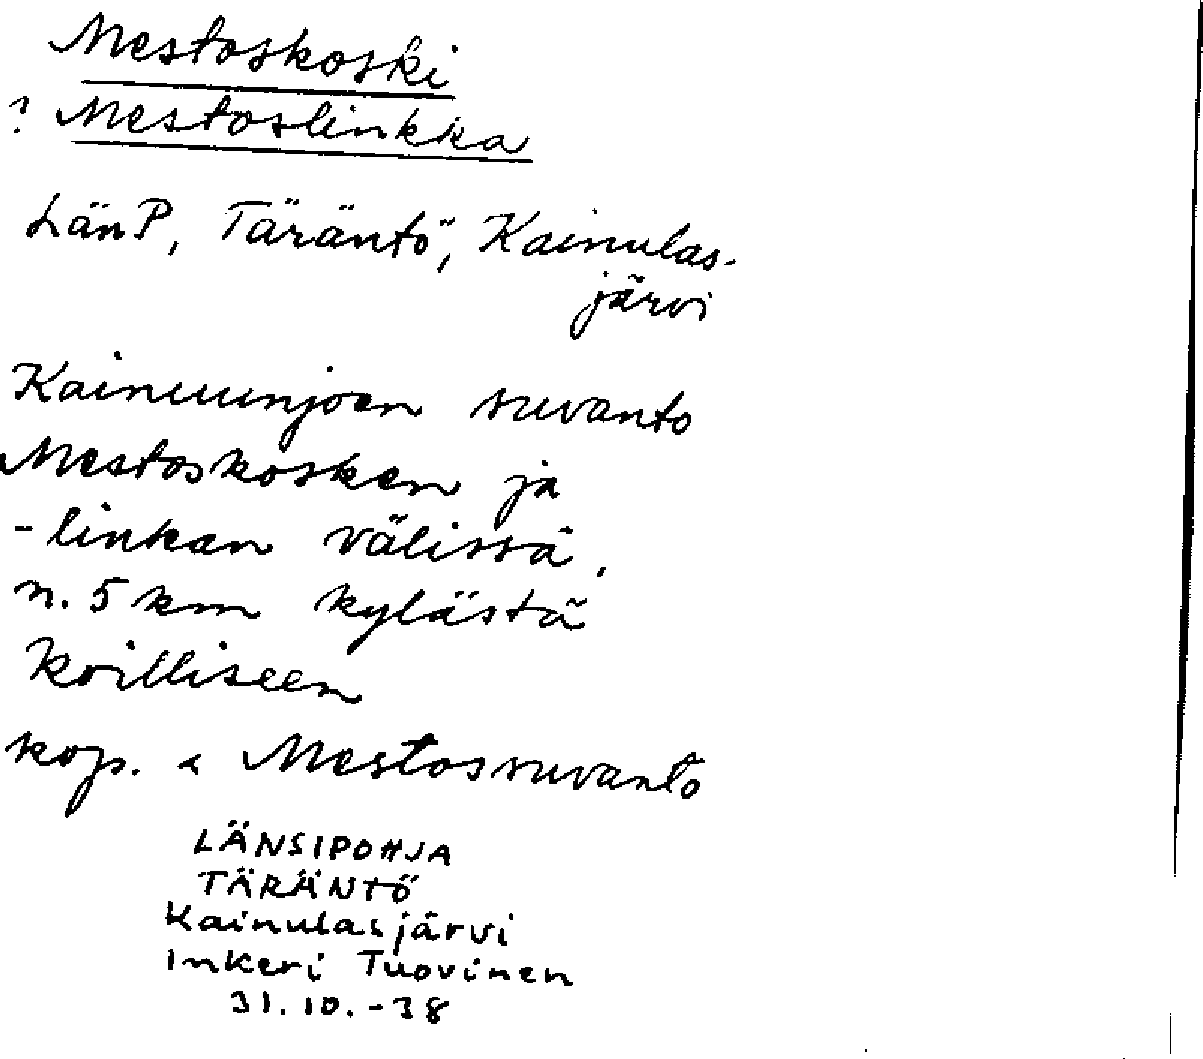 Mestoskoski
? Mestoslinkka
LänP, Täräntö, Kainulas-
järvi
Kainuunjoen suvanto
Mestoskosken ja
-linkan välissä,
n. 5 km kylästä
koilliseen
kop. < Mestossuvanto
LÄNSIPOHJA
TÄRÄNTÖ
Kainulasjärvi
Inkeri Tuovinen
31.10.-38